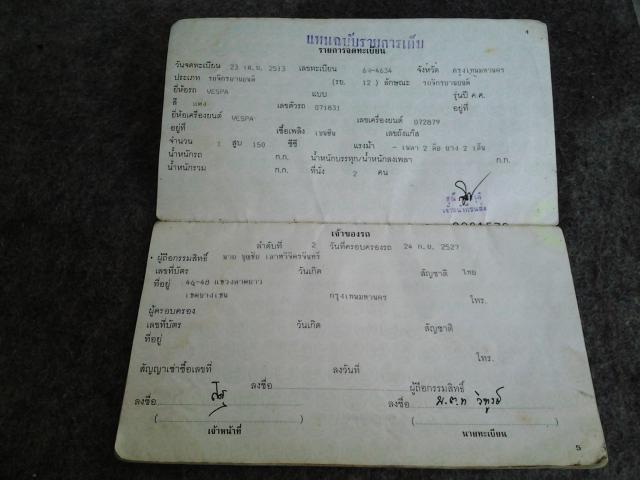 4
แทนฉบับรายการเดิม
รายการจดทะเบียน
วันจดทะเบียน 23 เม.ย. 2513 เลขทะเบียน 6จ-4634 จังหวัด กรุงเทพมหานคร
ประเภท รถจักรยานยนต์ (รย. 12 ) ลักษณะ รถจักรยานยนต์
ยี่ห้อรถ VESPA แบบ รุ่นปี ค.ศ.
สี แดง เลขตัวรถ 071831 อยู่ที่
ยี่ห้อเครื่องยนต์ VESPA เลขเครื่องยนต์ 072879
อยู่ที่ เชื้อเพลิง เบนซิน เลขถังแก๊ส
จำนวน 1 สูบ 150 ซีซี แรงม้า - เพลา 2 ล้อ ยาง 2 เส้น
น้ำหนักรถ ก.ก. น้ำหนักบรรทุก/น้ำหนักลงเพลา ก.ก.
น้ำหนักรวม ก.ก. ที่นั่ง 2 คน
เจ้าของรถ
ลำดับที่ 2 วันที่ครอบครองรถ 24 ก.ย. 2527
ผู้ถือกรรมสิทธิ์ นาย
เลขที่บัตร วันเกิด สัญชาติ ไทย
ที่อยู่ 46-48 แขวงลาดยาว
เขตบางเขน กรุงเทพมหานคร โทร.
ผู้ครอบครอง
เลขที่บัตร วันเกิด สัญชาติ
ที่อยู่
โทร.
สัญญาเช่าซื้อเลขที่ ลงวันที่
ลงชื่อ ผู้ถือกรรมสิทธิ์
ลงชื่อ ลงชื่อ
( ) ( )
เจ้าหน้าที่ นายทะเบียน
5